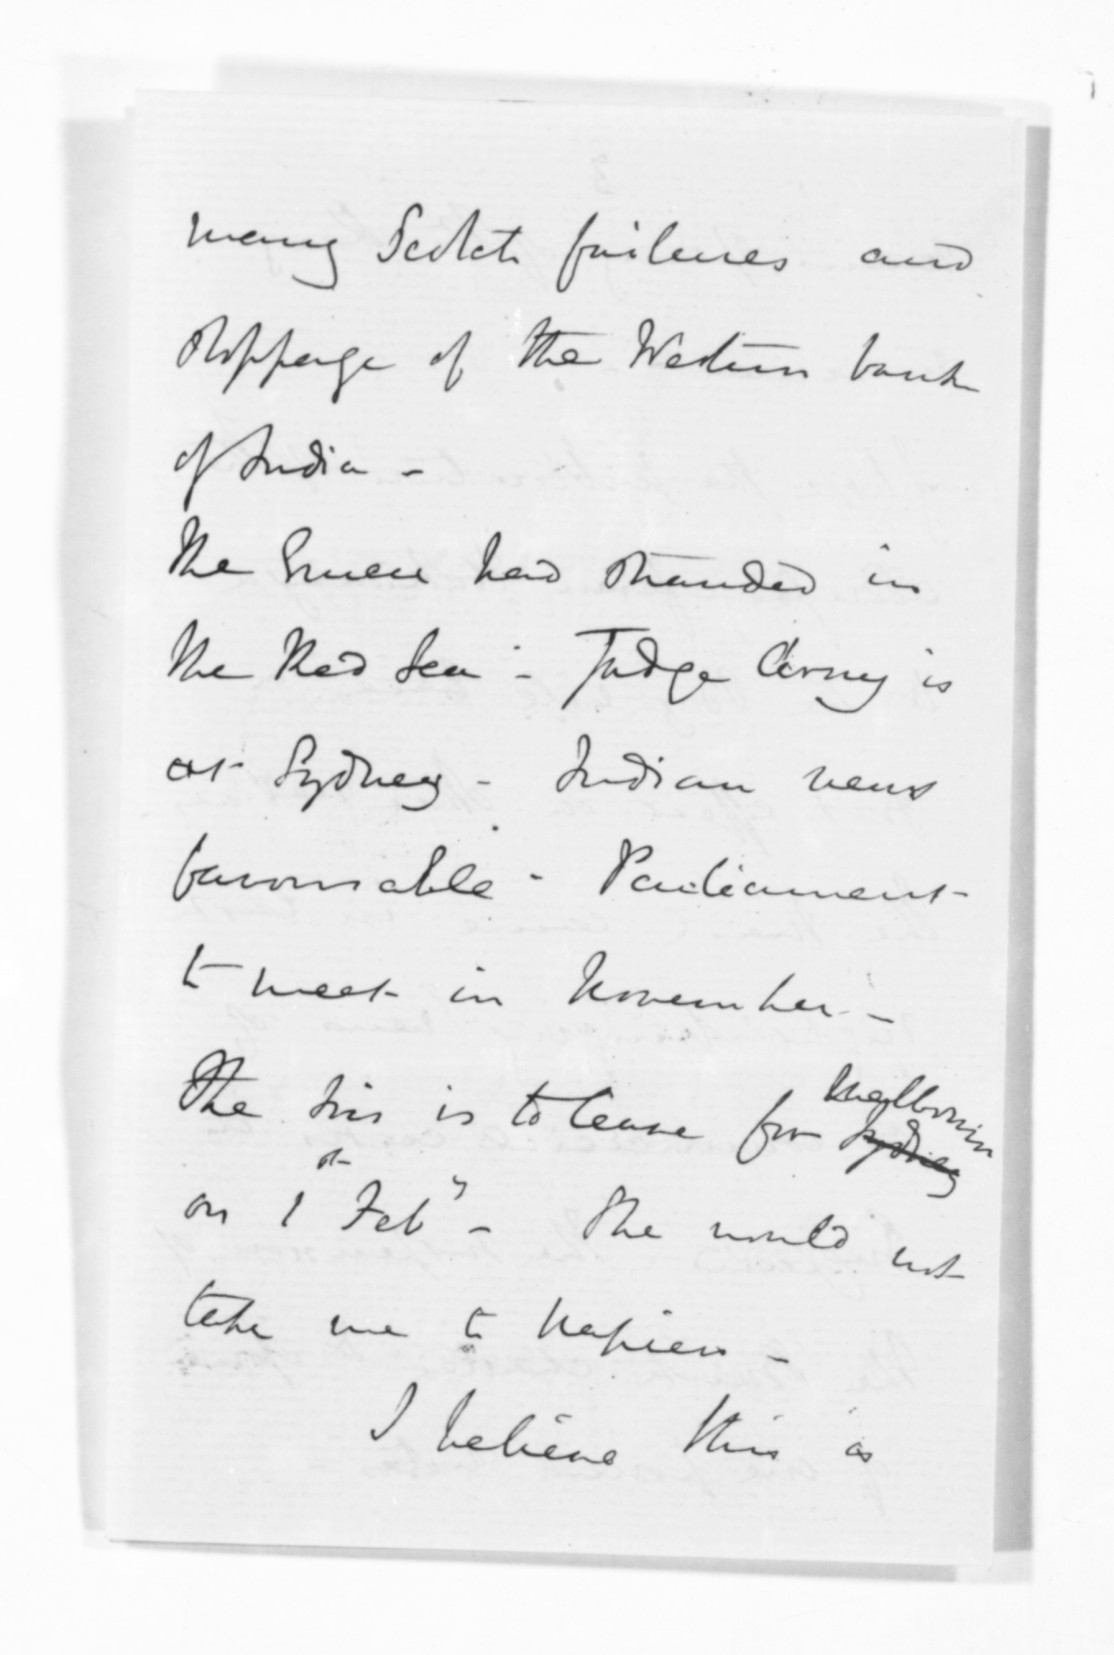 many Scotch failures and
stoppage of the Western bank
of India -
The Emeu had stranded in
the Red Sea - Judge is
at Sydney - Indian news
favourable - Parliament
to meet in November -
The is to leave for Melbourne Sydney
on 1st Feby - She would not
take me to Napier -
I believe this is